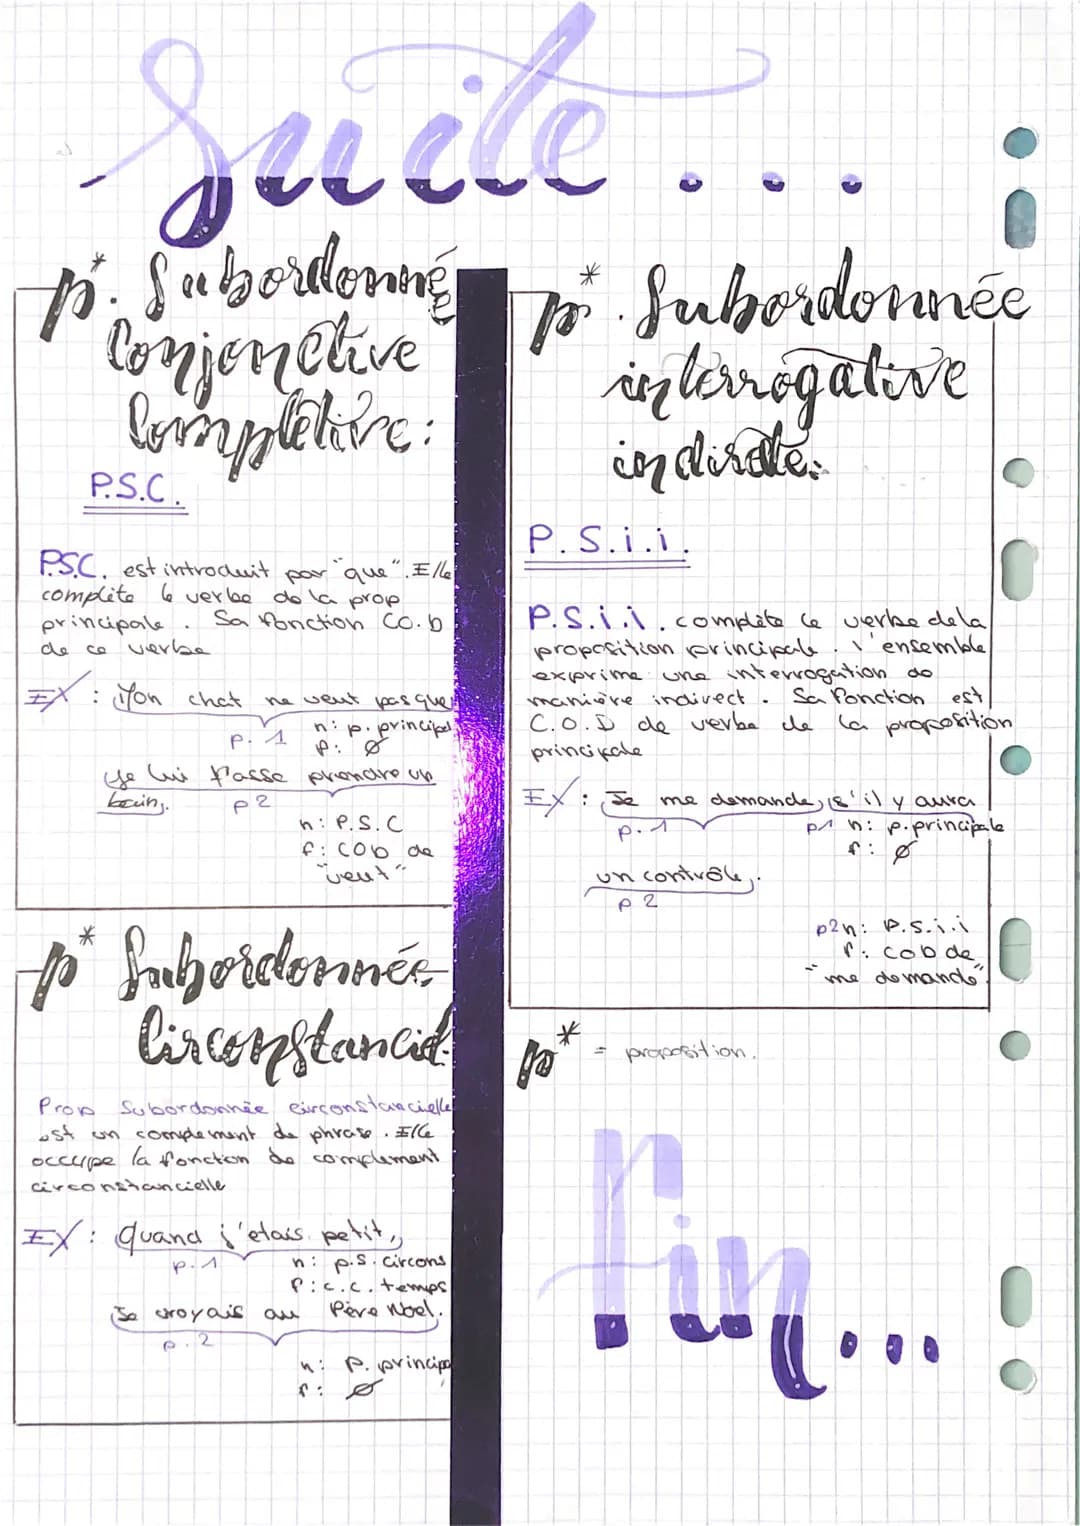 Suite...
p*. Subordonné
Conjonctive
Complétive:
P.S.C.
P.S.C. est introduit par "que". Elle
complète le verbe de la prop
principale. Sa fonction CO.D
de ce verbe
EX: Mon chat ne veut pas que
p. 1
n: p. principal
f: ø
je lui fasse prendre un
bain.
p2
n: P.S.C
f: COD de
"veut"
p* Subordonnée
Circonstanciel.
Prop Subordonnée circonstancielle
est un complement de phrase. Elle
occupe la fonction de complement
circonstancielle
EX: Quand j'etais petit,
p.1
n: p.s.circons
f: c.c. temps
Je croyais au Père Noel.
p.2
n: p. principa
f: ø
p*. Subordonnée
interrogative
indirecte:
P.S.i.i.
P.S.i.i. complète le verbe de la
proposition principale. l'ensemble
exprime une interrogation de
manière indirect. Sa fonction est
C.O.D de verbe de la proposition
principale
EX: Je me demande, s'il y aura
p.1
p1 n: p.principale
f: ø
un contrôle.
p2
p2n: P.S.i.i
f: COD de
"me demande"
p* = proposition.
Fin...